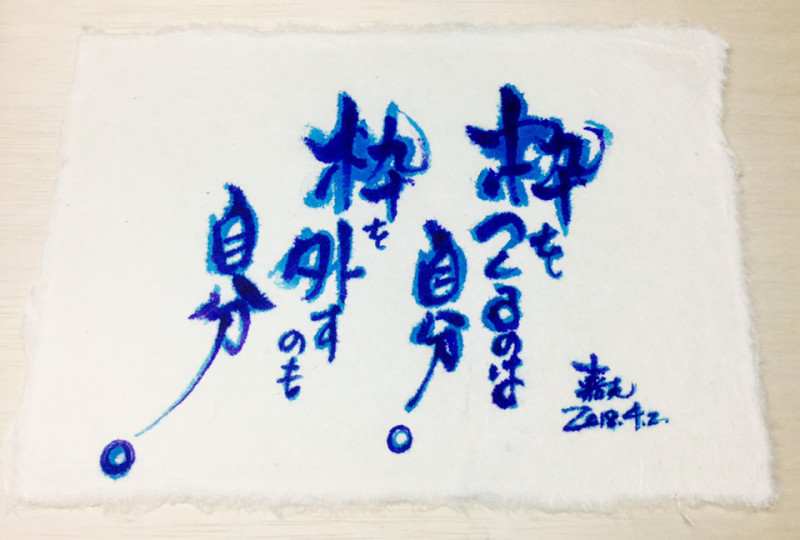 枠をつくるのは
自分。
枠を外すのも
自分。
2018.4.2.